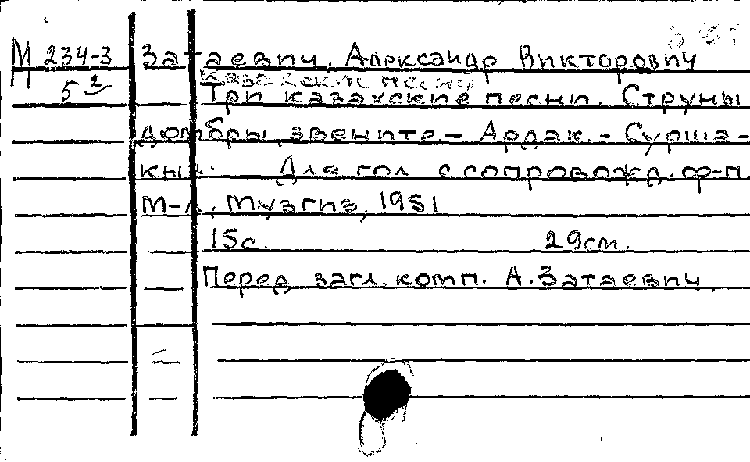 М 234-3 Затаевич, Александр Викторович
Казахские песни
5 3 Три казахские песни. Струны
домбры звените - Ардак. - Сурша-
кыз. Для гол с сопровожд. ф-п
М-Л, Музгиз, 1951
15с. 29см.
Перед загл. комп. А. Затаевич.